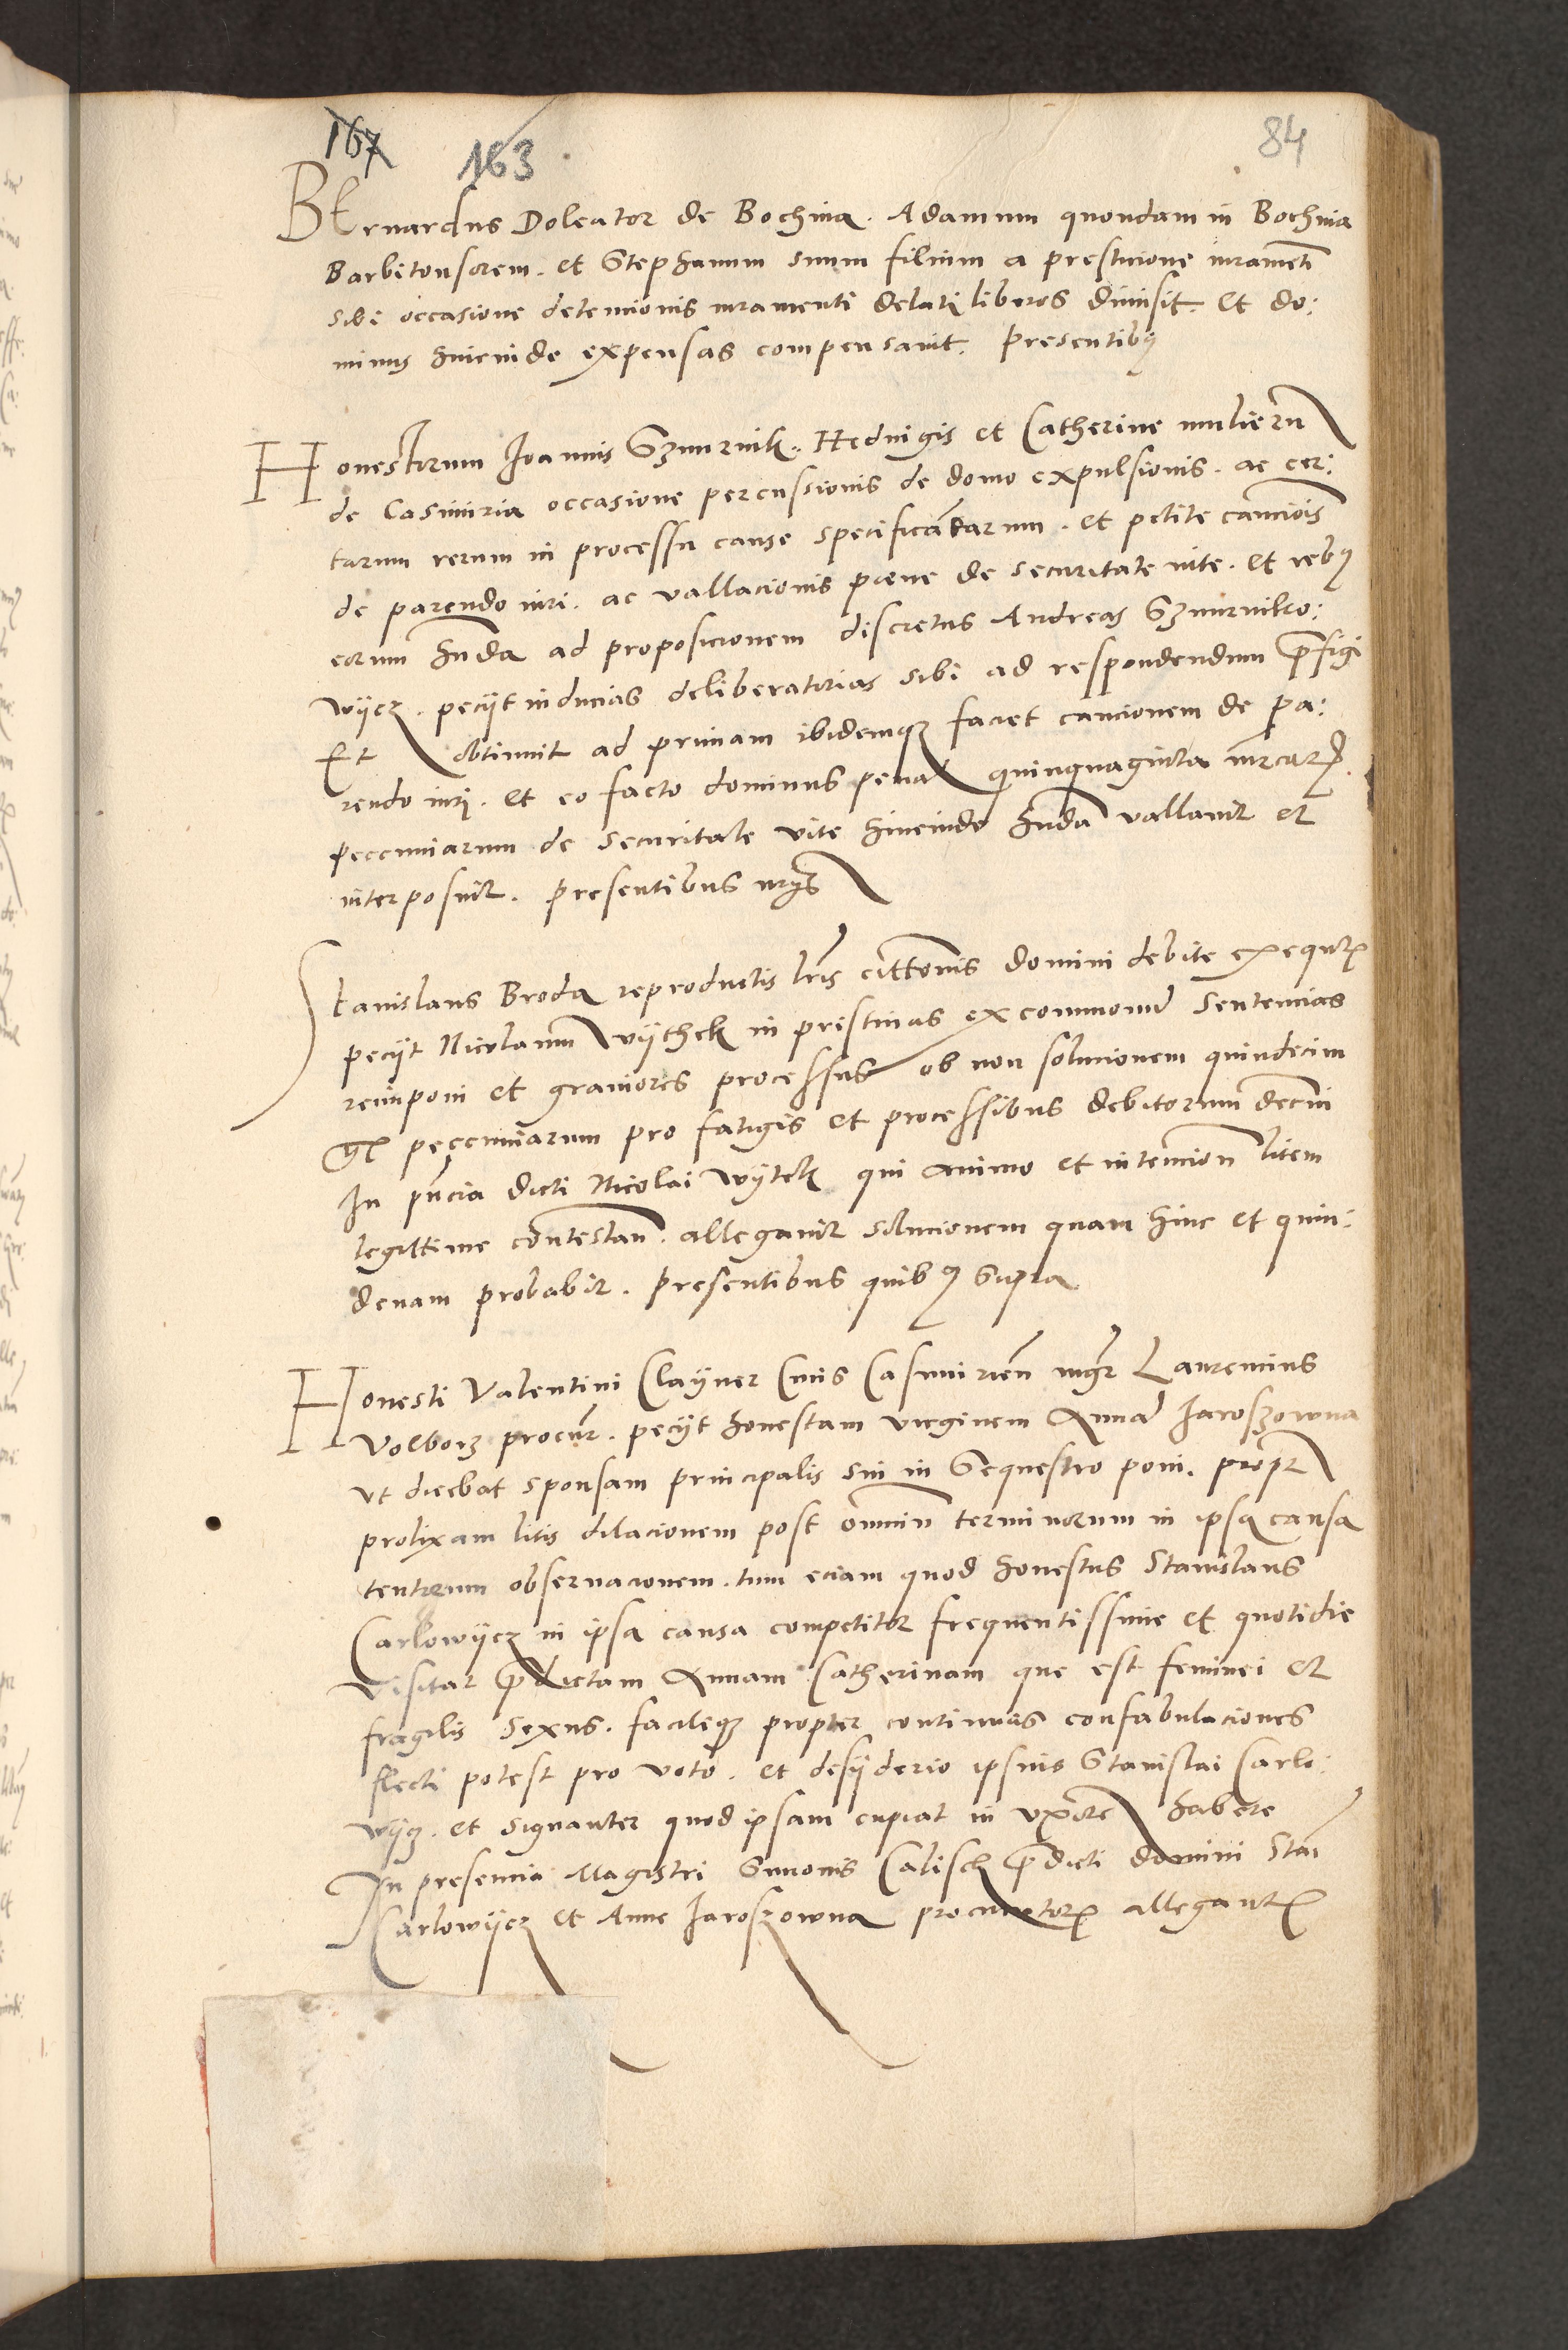 167 163 84
BErnardus Doleator de Bochnia. Adamum quondam in Bochnia
Barbitonsorem. et Stephanum suum filium a prestacione iuramenti
sibi occasione detencionis iuramenti delati liberos dimisit. et do:
minus hincinde expensas compensavit. Presentibus
Honestorum Joannis Szmurnik. Hedvigis et Catherine mulierum
de Casimiria occasione percussionis de domo expulsionis. ac cer:
tarum rerum in processu cause specificandarum. et petite caucionis
de parendo iuri. ac vallacionis pene de securitate vite. et rebus
eorum habenda ad proposicionem discretus Andreas Szmurniko:
wycz. pecyt inducias deliberatorias sibi ad respondendum prefigi
Et obtinuit ad primam ibidemque faciet caucionem de pa:
rendo iuri. et eo facto dominus penam quinquaginta marcarum
peccuniarum de securitate vite hincinde habenda vallavit et
interposuit. Presentibus
Stanislaus Broda reproductis litteris domini debite executis
pecyt Nicolaum Wythek in pristinas excommunicacionis sentencias
reimponi et graviores processus ob non solucionem quindecim
peccuniarum pro fatigis et processibus debitorum decerni
In presencia dicti Nicolai Wytek qui animo et intencione litem
legittime contestan. allegavit solucionem quam hinc et quin:
denam probabit. Presentibus quibus supra
Honesti Valentini Clayner Civis Casimirien magister Laurencius
Volborz procur. pecyt honestam virginem Annam Jaroszowna
ut dicebat sponsam principalis sui in Sequestro poni. propter
prolixam litis dilacionem post omnium terminorum in ipsa causa
tentorum observacionem. tum eciam quod honestus Stanislaus
Carlowycz in ipsa causa competitor frequentissime et quotidie
visitat predictam Annam Catherinam que est feminei et
fragilis sexus. facileque propter continuas confabulaciones
flecti potest pro voto. et desyderio ipsius Stanislai Carlo:
wycz. et signanter quod ipsam cupiat in uxorem habere
In presencia Magistri Simonis Calisch predicti domini Stai
Carlowycz et Anne Jaroszowna procuratoris allegantis